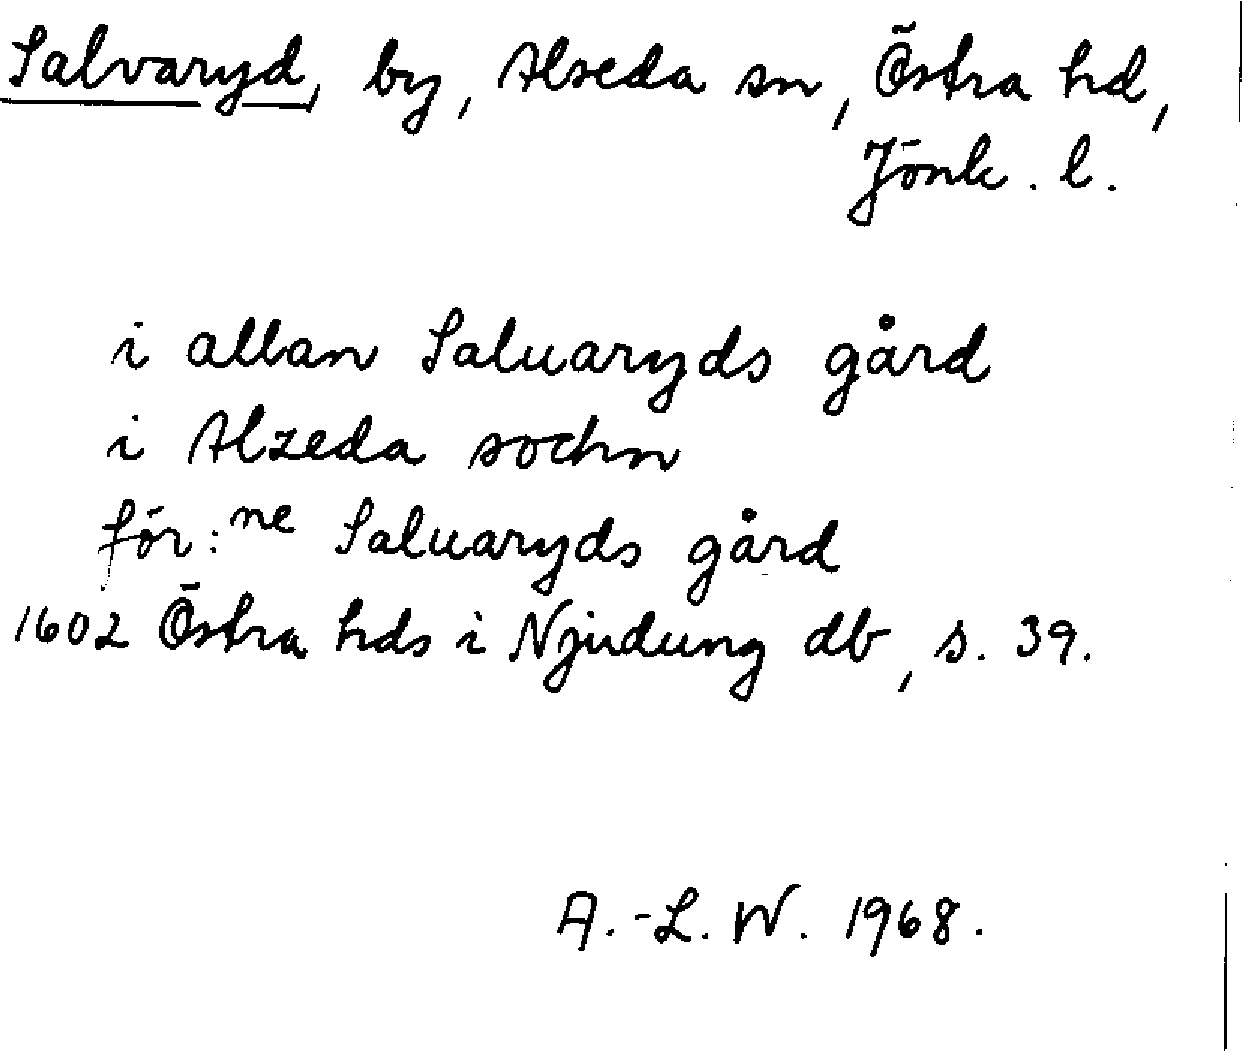 Salvaryd, by, Alseda sn, Östra hd,
Jönk. l.
i allan Saluaryds gård
i Alzeda sochn
för:ne Saluaryds gård
1602 Östra hds i Njudung db, s. 39.
A.-L. W. 1968.